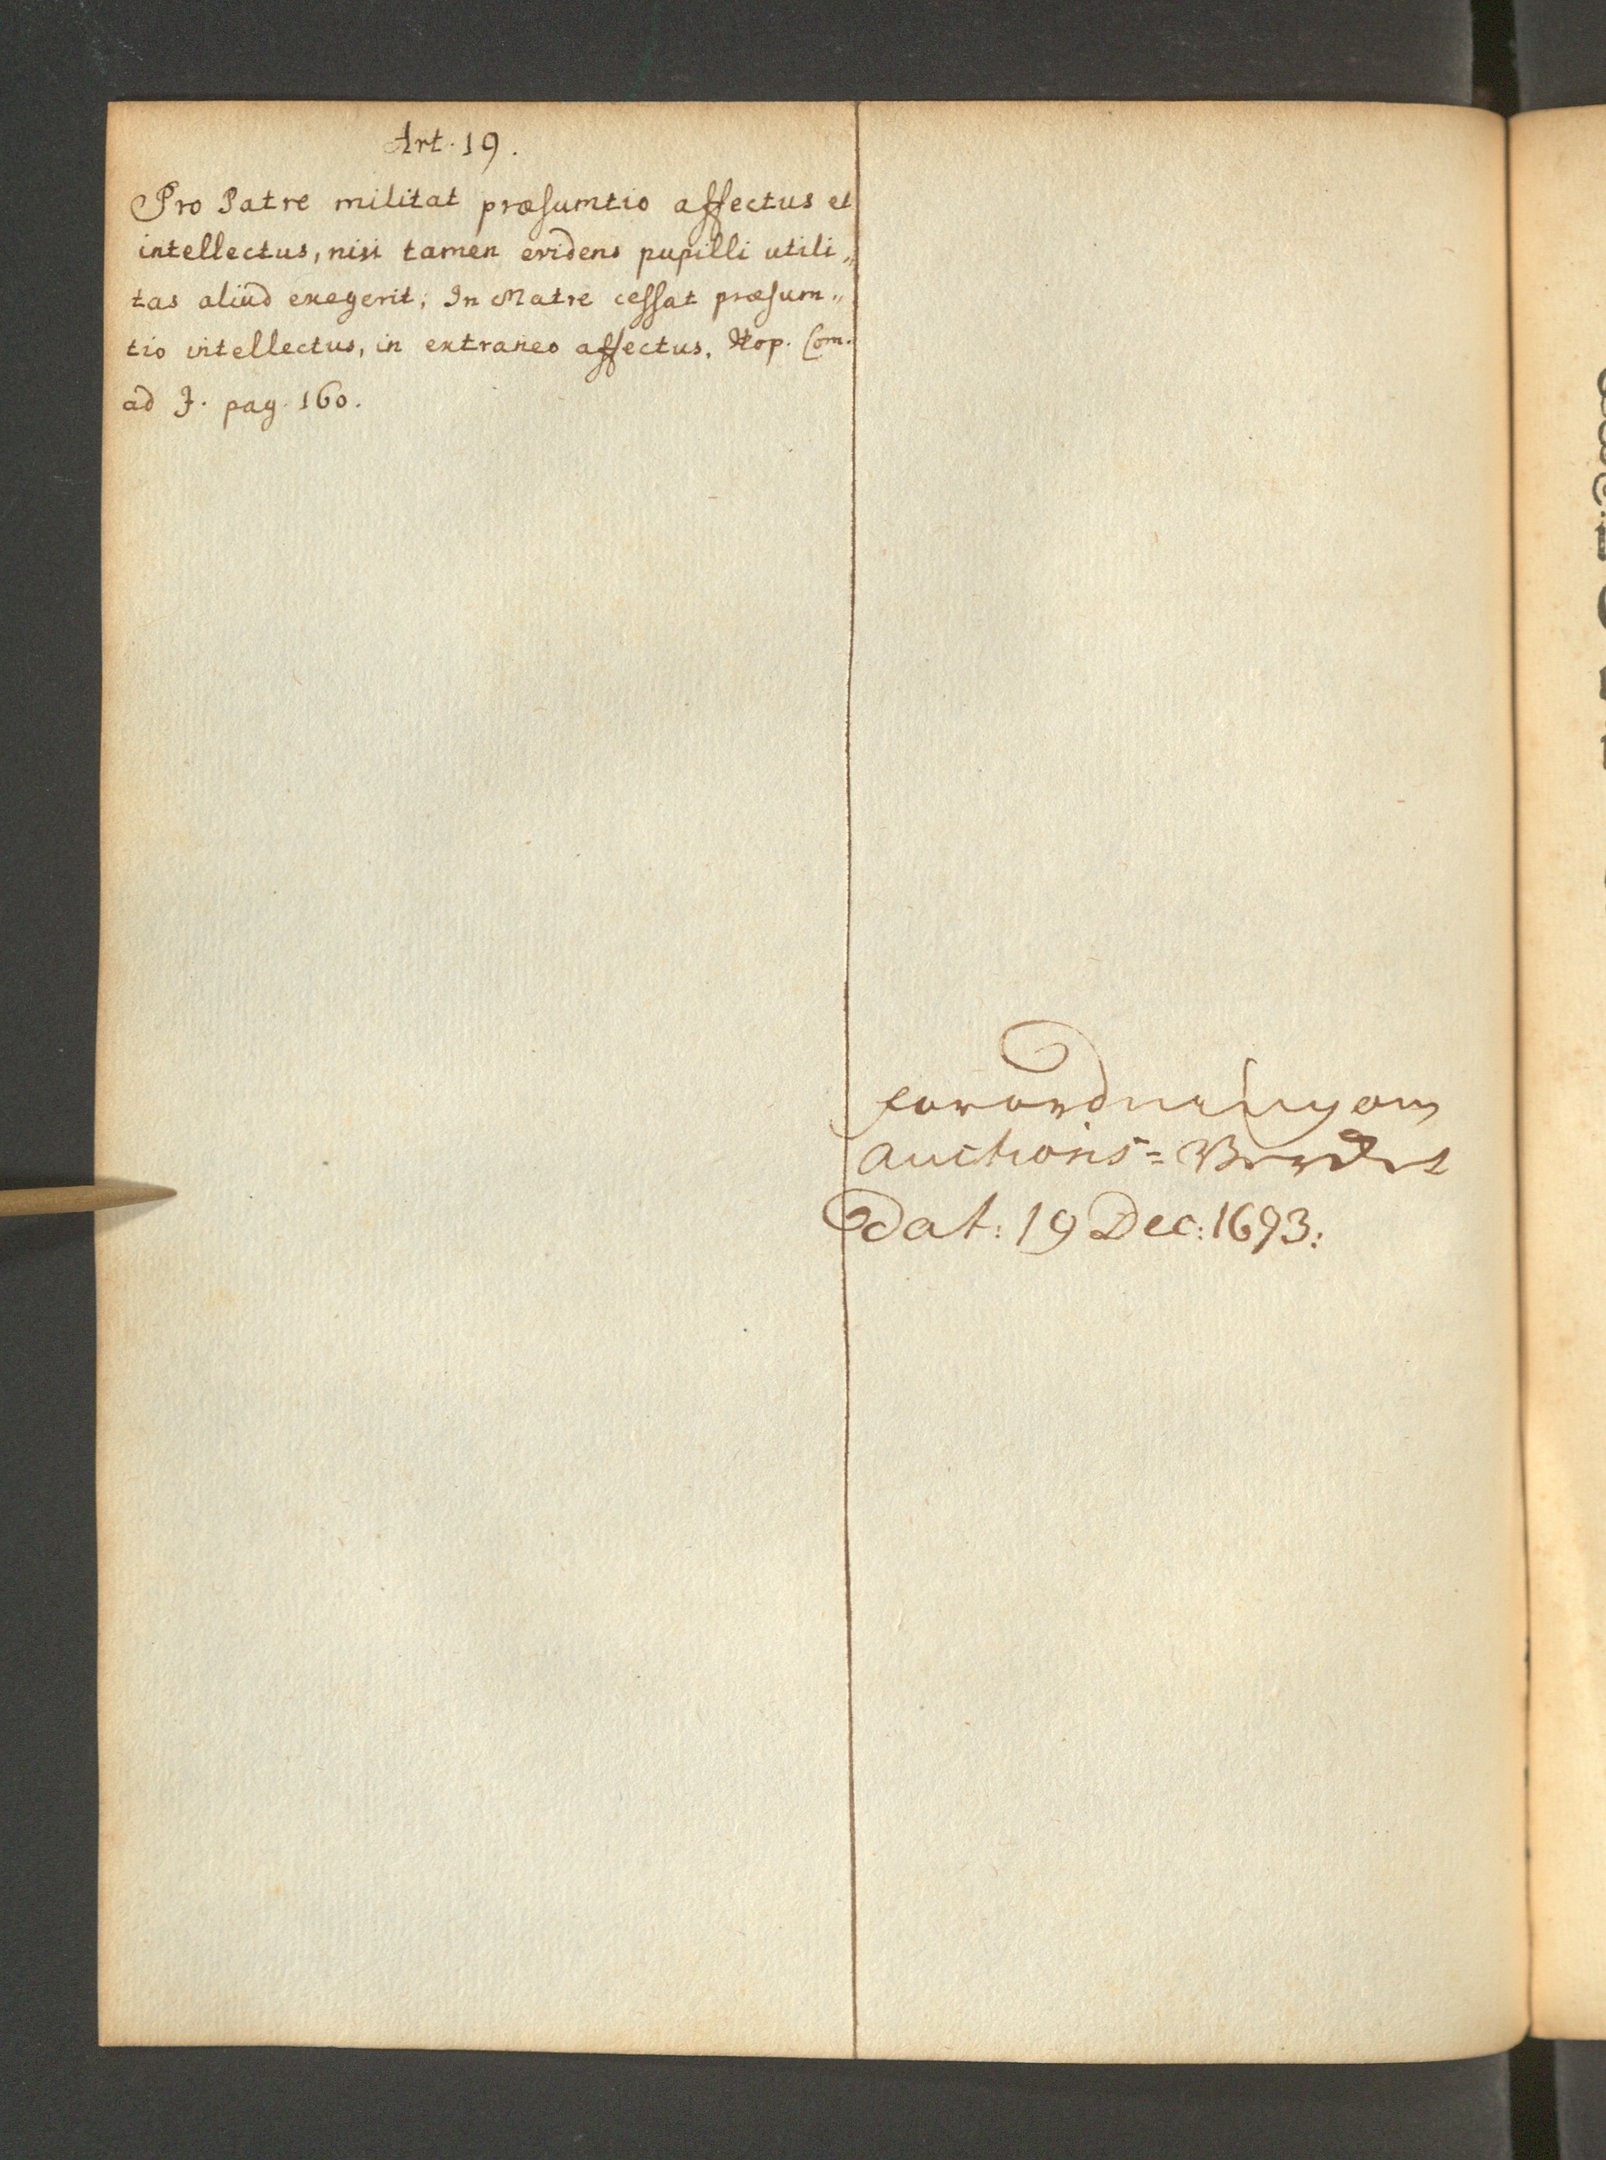 Art. 19.
Pro Patre militat præsumtio affectus et
intellectus, nisi tamen evidens pupilli utili„
tas aliud exegerit; In Matre cessat præsum„
tio intellectus, in extraneo affectus. Hop. Com.
ad J. pag. 160.
forordning om
auctions=
dat: 19 Dec: 1693: